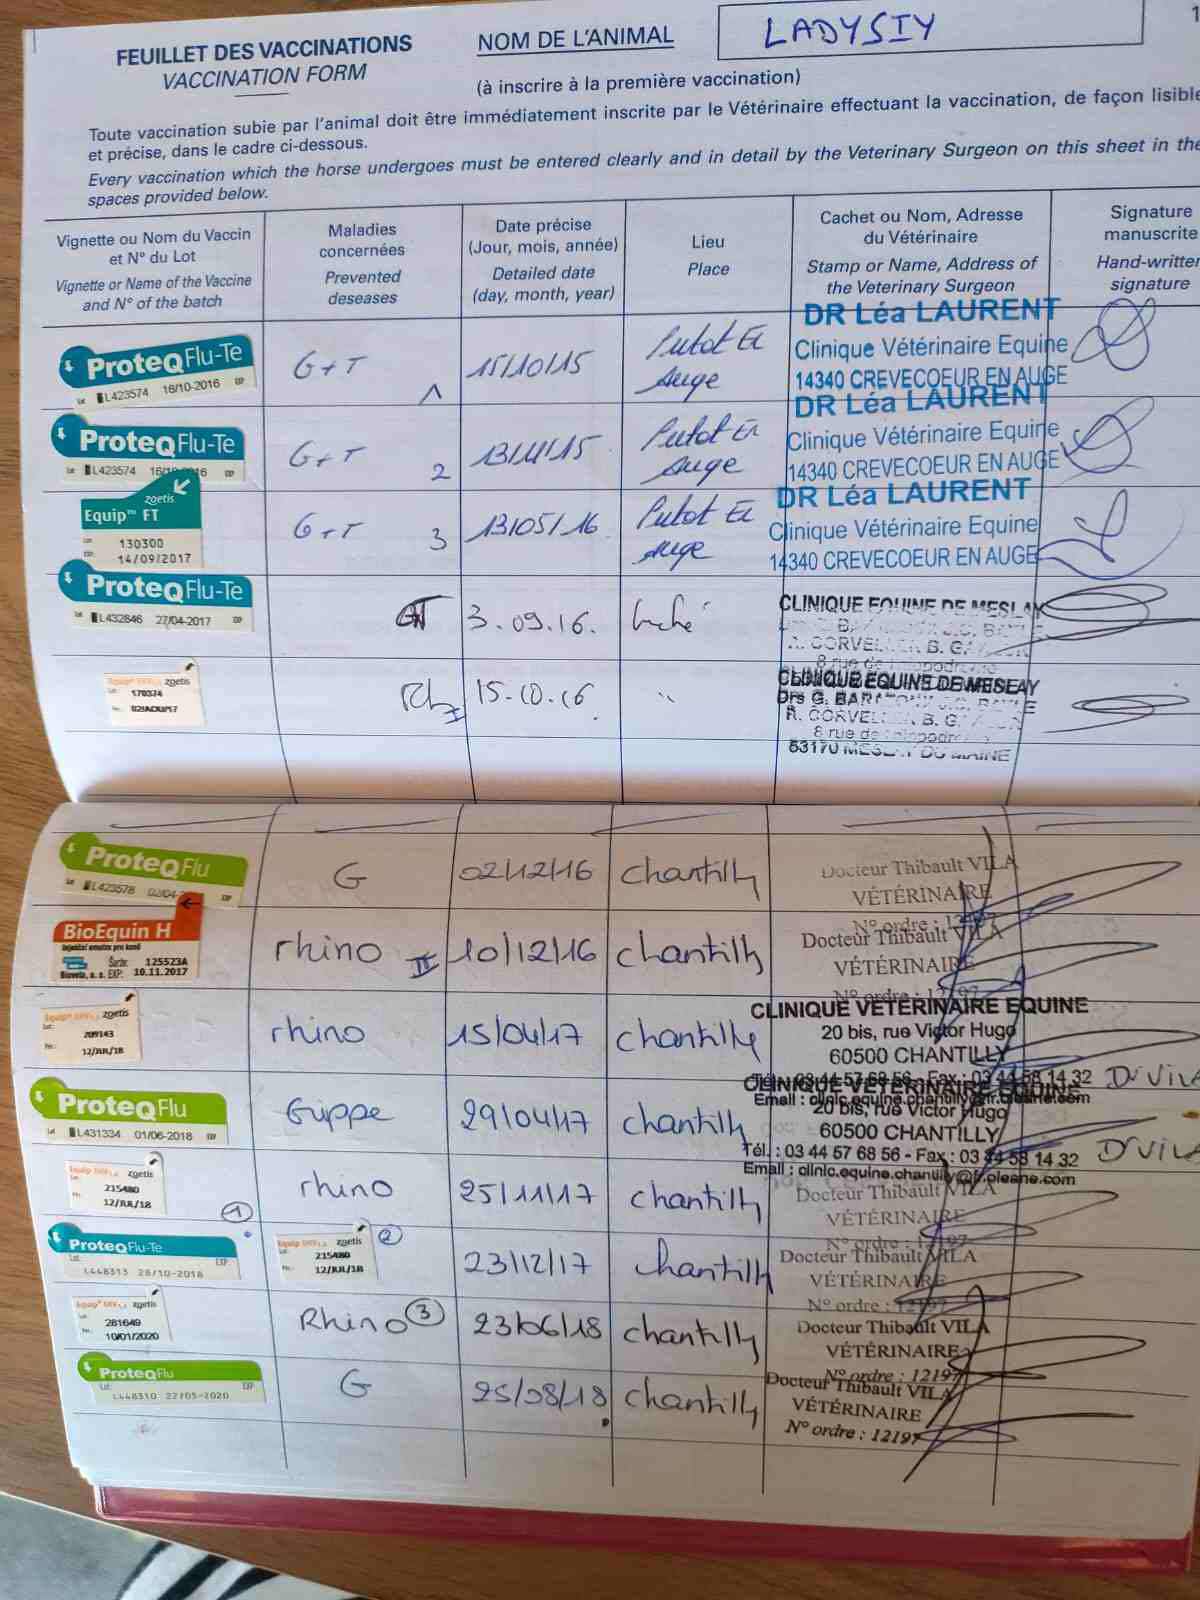 FEUILLET DES VACCINATIONS
VACCINATION FORM
NOM DE L'ANIMAL
LADYSIY
1
(à inscrire à la première vaccination)
Toute vaccination subie par l'animal doit être immédiatement inscrite par le Vétérinaire effectuant la vaccination, de façon lisible
et précise, dans le cadre ci-dessous.
Every vaccination which the horse undergoes must be entered clearly and in detail by the Veterinary Surgeon on this sheet in the
spaces provided below.
Vignette ou Nom du Vaccin
et N° du Lot
Vignette or Name of the Vaccine
and N° of the batch
Maladies
concernées
Prevented
deseases
Date précise
(Jour, mois, année)
Detailed date
(day, month, year)
Lieu
Place
Cachet ou Nom, Adresse
du Vétérinaire
Stamp or Name, Address of
the Veterinary Surgeon
Signature
manuscrite
Hand-written
signature
ProteqFlu-Te
Lot L423574 16/10-2016 EXP
G+T 1
15/10/15
Putot En
Auge
DR Léa LAURENT
Clinique Vétérinaire Equine
14340 CREVECOEUR EN AUGE
ProteqFlu-Te
Lot L423574 16/10-2016 EXP
G+T 2
13/11/15
Putot En
Auge
DR Léa LAURENT
Clinique Vétérinaire Equine
14340 CREVECOEUR EN AUGE
zoetis
Equip™ FT
130300
14/09/2017
G+T 3
13/05/16
Putot En
Auge
DR Léa LAURENT
Clinique Vétérinaire Equine
14340 CREVECOEUR EN AUGE
ProteqFlu-Te
Lot L432846 27/04-2017 EXP
GT
3.09.16.
CLINIQUE EQUINE DE MESLAY
R. CORVELLER B. G.
8 rue de l'hippodrome
Equip® EHV1,4 zoetis
170374
Rh I
15-10-16.
"
CLINIQUE EQUINE DE MESLAY
Drs G.
8 rue de l'hippodrome
53170 MESLAY DU MAINE
ProteqFlu
Lot L423578 EXP
G
02/12/16
Chantilly
Docteur Thibault VILA
VÉTÉRINAIRE
N° ordre : 12197
BioEquin H
injekční emulze pro koně
Šarže: 125523A
Bioveta, a. s. EXP: 10.11.2017
rhino II
10/12/16
Chantilly
Docteur Thibault VILA
VÉTÉRINAIRE
N° ordre : 12197
Equip® EHV1,4 zoetis
209143
12/JUL/18
rhino
15/04/17
Chantilly
CLINIQUE VETERINAIRE EQUINE
20 bis, rue Victor Hugo
60500 CHANTILLY
Tél. : 03 44 57 68 56 - Fax : 03 44 58 14 32
Email : clinic.equine.chantilly@fr.oleane.com
Dr VILA
ProteqFlu
Lot L431334 01/06-2018 EXP
Grippe
29/04/17
Chantilly
CLINIQUE VETERINAIRE EQUINE
20 bis, rue Victor Hugo
60500 CHANTILLY
Tél. : 03 44 57 68 56 - Fax : 03 44 58 14 32
Email : clinic.equine.chantilly@fr.oleane.com
Dr VILA
Equip® EHV1,4 zoetis
215480
12/JUL/18
1
rhino
25/11/17
Chantilly
Docteur Thibault VILA
VÉTÉRINAIRE
N° ordre : 12197
ProteqFlu-Te
L448313 28/10-2018 EXP
Equip® EHV1,4 zoetis
215480
12/JUL/18
2
23/12/17
Chantilly
Docteur Thibault VILA
VÉTÉRINAIRE
N° ordre : 12197
Equip® EHV1,4 zoetis
281649
10/01/2020
Rhino 3
23/06/18
Chantilly
Docteur Thibault VILA
VÉTÉRINAIRE
N° ordre : 12197
ProteqFlu
L448310 22/05-2020 EXP
G
25/08/18
Chantilly
Docteur Thibault VILA
VÉTÉRINAIRE
N° ordre : 12197